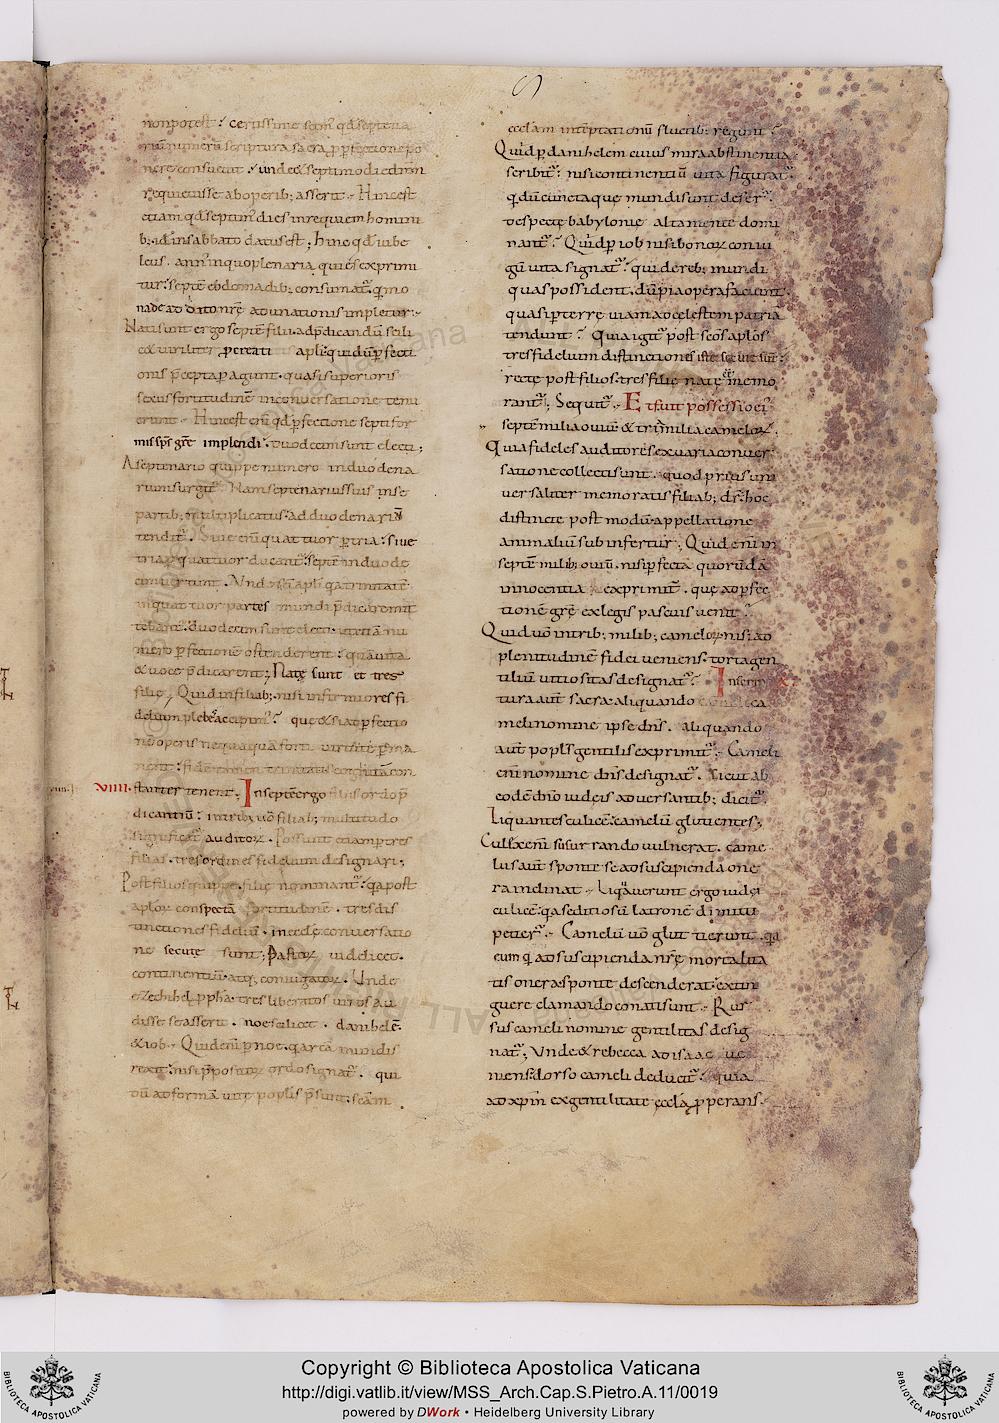 non potest. certissime scim' qd septena
riu numeru scriptura sacra p pfectione po
nere consuevit. unde & septimo die dnm
requieuisse ab operib; asserit. Hinc est
etiam qd septim' dies in requiem homini
b; id in sabbato datus est; hinc qd iube
leus. ann' in quo plenaria quies exprimi
tur. septe ebdomadib; consumat'. q mo
nade addito nre adunationis impletur.
Nati sunt ergo septe filii. ad pdicandu scili
onis pcepta pagunt. quasi superioris
sexus fortitudine in conuersatione tenu
erunt. Hinc est eni qd pfectione septifor
mis sps gre implendi. duodecim sunt electi;
A septenario quippe numero in duodena
rium surgit'. Nam septenarius suis in se
partib; multiplicatus ad duodenariu
tendit'. Siue eni quattuor p tria. siue
tria p quattuor ducant'. septe in duode
cim uertunt. Unde sci apli qa trinitate
in quattuor partes mundi pdicare mit
tebant'. duodecim sunt electi. ut etia nu
mero pfectione ostenderent. qua uita
& uoce pdicarent; Natę sunt et tres
filię. Quid in filiab; nisi infirmiores fi
delium plebes accipim'. quę & si ad pfectio
ne operis nequaqua forti uirtute pma
nent. fide tamen trinitatis cognita con
VIIII. stanter tenent. In septe ergo filiis ordo p
dicantiu. in trib; uo filiab; multitudo
significat' auditor. Possunt etiam p tres
filias. tres ordines fidelium designari;
Post filios quippe. filię nominant'. qa post
aplor conspecta fortitudine. tres dis
tinctiones fideliu. in ecclę conuersatio
ne secutę sunt; Pastor uidelicet.
continentiu. atq; coniugator. Unde
ezechihel ppha. tres liberatos uiros au
disse se asserit. noe scilicet. danihele.
& iob. Quid eni p noe. q arca in undis
rexit. nisi ppositor ordo signat'. qui
du ad forma uitę poplis psunt. scam
ecclam in teptationu fluctib; regunt.
Quid p danihelem cuius mira abstinentia
scribit'. nisi continentiu uita figurat'.
q du cuncta quę mundi sunt deser'.
despectę babylonię alta mente domi
nant'. Quid p iob nisi bonor coniu
gu uita signat'. qui de reb; mundi
quas possident. du pia opera faciunt
quasi p terrę uiam ad celestem patria
tendunt. Quia igit' post scos aplos
tres fidelium distinctiones istę secutę sunt.
rectę post filios. tres filię natę ee memo
rant'; Sequit'. Et fuit possessio ei'
septe milia ouiu & tria milia camelor.
Quia fideles auditores ex uaria conuer
satione collecti sunt. quod prius uni
uersaliter memoratis filiab; dr. hoc
distincte post modu appellatione
animaliu subinfertur. Quid eni in
septe milib; ouiu. nisi pfecta quorunda
innocentia exprimit'. quę ad pfec
tione gre ex legis pascuis uenit.
Quid uo in trib; milib; camelor. nisi ad
plenitudine fidei ueniens. torta gen
tiliu uitiositas designat'. In scrip X
tura aut sacra aliquando
meli nomine ipse dns. aliquando
aut popls gentilis exprimit'. Cameli
eni nomine dns designat'. sicut ab
eode dno iudeis aduersantib; dicit'.
Liquantes culice. camelu glutientes;
Culex eni susurrando uulnerat. came
lus aut sponte se ad suscipienda one
ra inclinat. Liquauerunt ergo iudei
culice. qa seditiosu latrone dimitti
petier'. Camelu uo glutierunt. qa
eum q ad suscipienda nrę mortalita
tis onera sponte descenderat. extin
guere clamando conati sunt. Rur
sus cameli nomine gentilitas desig
nat'; Unde & rebecca ad isaac ue
niens. dorso cameli deducit'. quia
ad xpm ex gentilitate eccla pperans.
Copyright © Biblioteca Apostolica Vaticana
http://digi.vatlib.it/view/MSS_Arch.Cap.S.Pietro.A.11/0019
powered by DWork • Heidelberg University Library
BIBLIOTECA APOSTOLICA VATICANA
BIBLIOTECA APOSTOLICA VATICANA